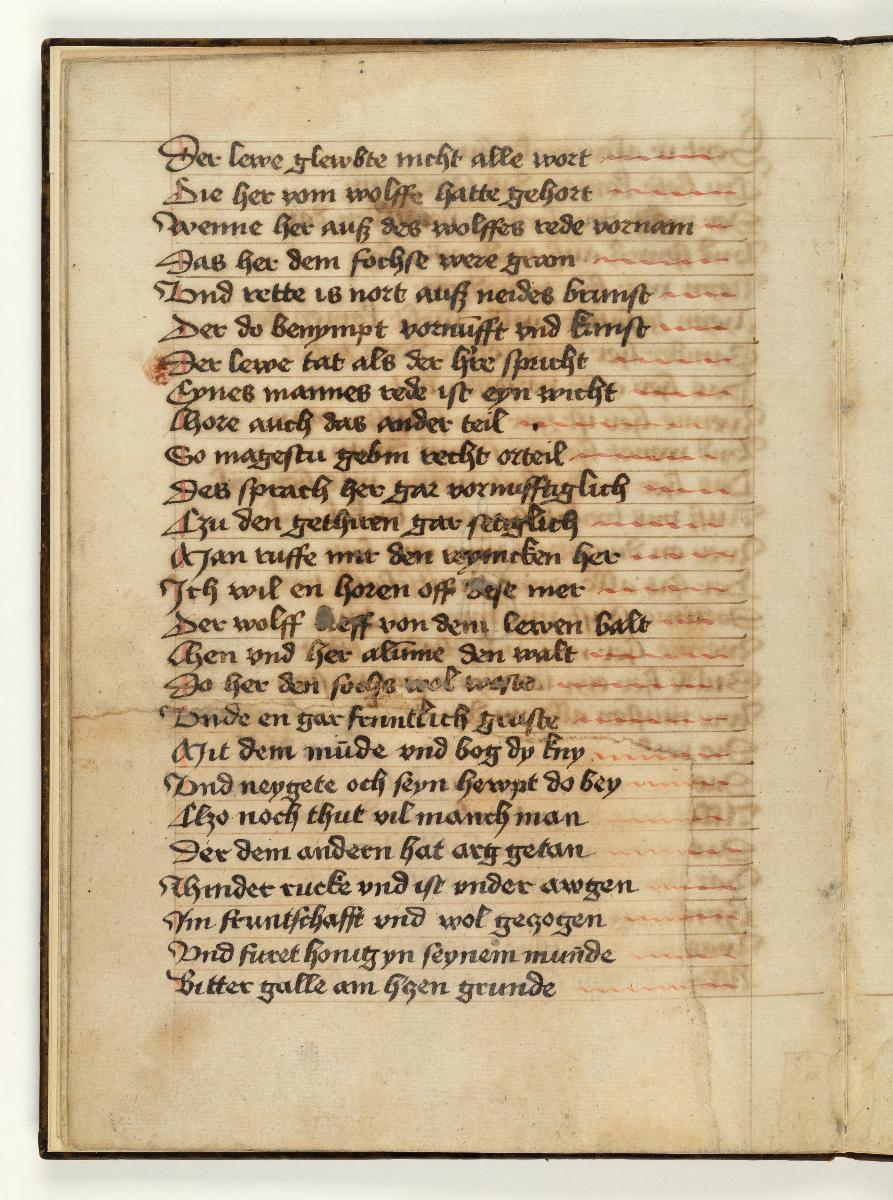 Der lewe glewbte nicht alle wort
Die her vom wolffe hatte gehort
Wenne her auß des wolffes rede vornam
Das her dem fochse were gram
Vnd rette is nort auß neides brunst
Der do benympt vornūfft vnd kunst
Der lewe tat als der h're spricht
Eynes mannes rede ist eyn wicht
Hore auch das ander teil
So magestu gebin recht orteil
Des sprach her gar vornufftiglich
Czu den gethiren gar
Man ruffe mir den reyncken her
Ich wil en horen off dese mer
Der wolff leff von dem lewen balt
Hen vnd her alūme den walt
Do her den fochs wol woste
Vnde en gar fruntlich gruste
Mit dem mūde vnd bog dy kny
Vnd neygete och seyn hewpt do bey
Alzo noch thut vil manch man
Der dem andern hat arg getan
Hinder rucke vnd ist vnder awgen
Im fruntschafft vnd wol gezogen
Vnd furet honig yn seynem mūnde
Bitter galle am hczen grunde